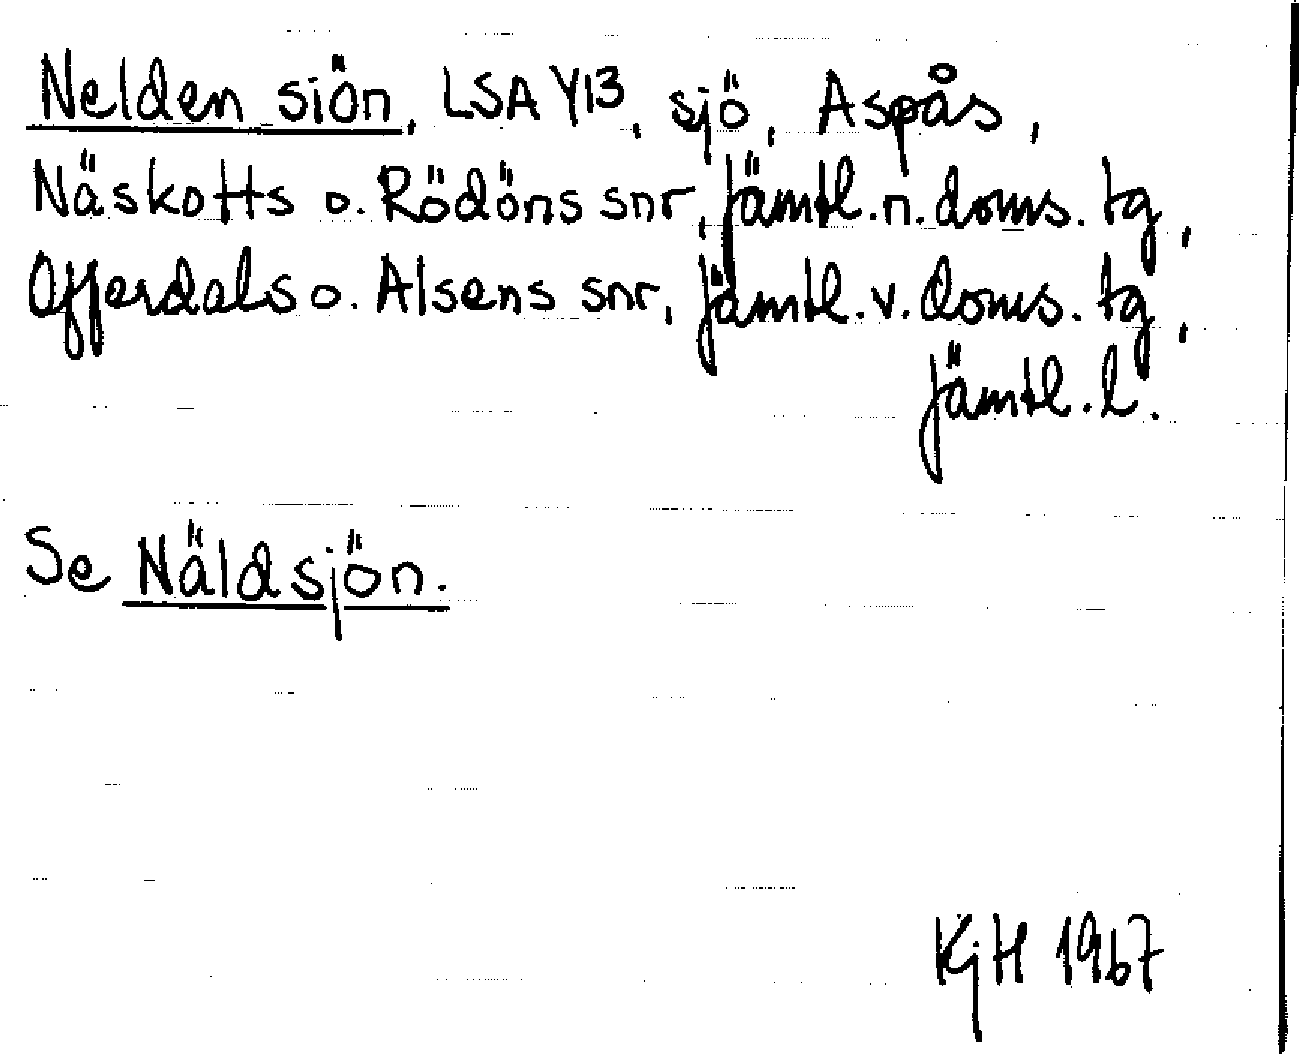 Nelden siön, LSA Y13, sjö, Aspås,
Näskotts o. Rödöns snr, Jämtl. n. doms. tg,
Offerdals o. Alsens snr, Jämtl. v. doms. tg,
Jämtl. l.
Se Näldsjön.
KjH 1967